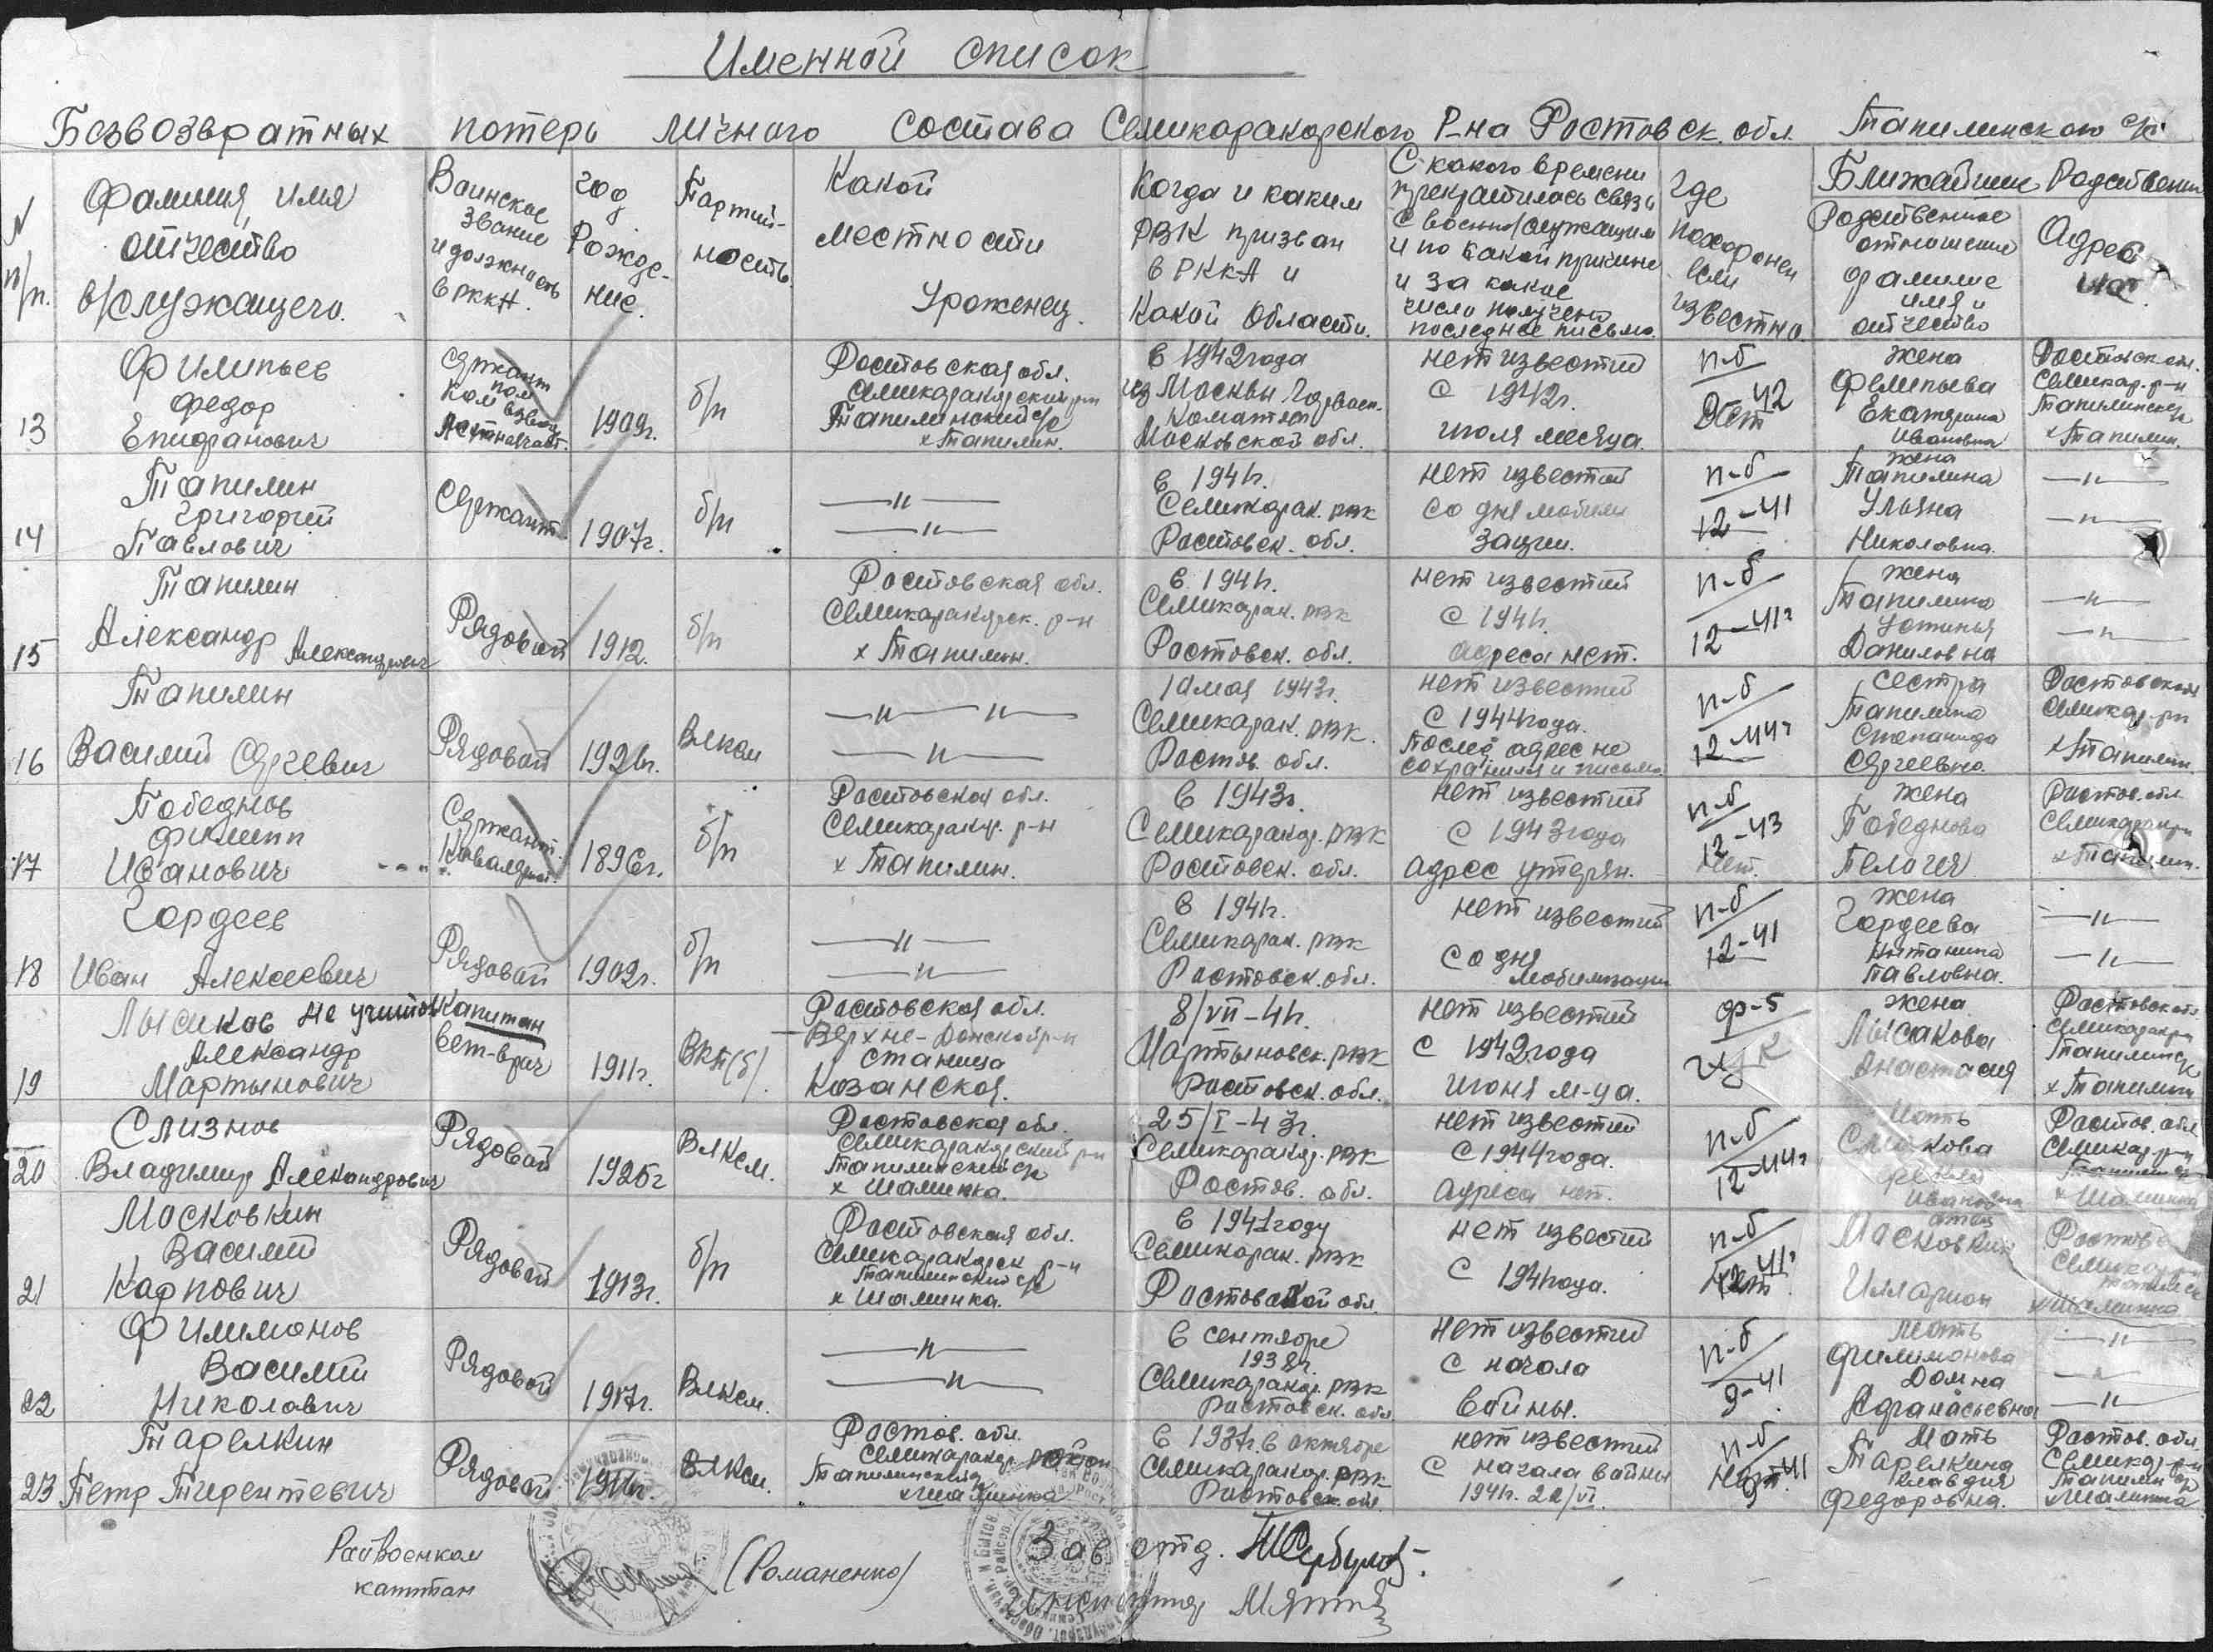 Именной список
Безвозвратных потерь личного состава Семикаракорского Р-на Ростовск. обл. Топилинского с/с
№ п/п.
Фамилия, имя
отчество
в/служащего.
Воинское
звание
и должность
в РККА.
год
Рожде-
ние.
Партий-
ность
Какой
местности
Уроженец.
Когда и каким
РВК призван
в РККА и
Какой области.
С какого времени
прекратилась связь
с военно/служащим
и по какой причине
и за какое
число получено
последнее письмо.
где
похоронен
если
известно.
Ближайшие Родственни
Родственное
отношение
фамилие
имя и
отчество
Адрес
их.
13
Филипьев
Федор
Епифанович
Сержант
пом
ком взвод
1909г.
б/п
Ростовская обл.
Семикаракорский р-н
Топилинский с/с
х Топилин.
в 1942года
из Москвы Горвоен.
Коматом
Московской обл.
нет известий
с 1942г.
июля месяца.
п-б
42
жена
Филипьева
Екатерина
Ивановна
Ростовск. обл.
Семикар. р-н
Топилинск с/с
х Топилин.
14
Топилин
Григорий
Павлович
Сержант
1907г.
б/п
—〃—
—〃—
в 1941г.
Семикорак. рвк
Ростовск. обл.
нет известий
со дня мобили
зации.
п-б
12-41
жена
Топилина
Ульяна
Николовна.
—〃—
—〃—
15
Топилин
Александр Александрович
Рядовой
1912.
б/п
Ростовская обл.
Семикаракорск. р-н
х Топилин.
в 1941г.
Семикорак. рвк
Ростовск. обл.
нет известий
с 1941г.
адреса нет.
п-б
12-41г
жена
Топилина
Устинья
Даниловна
—〃—
—〃—
16
Топилин
Василий Сергевич
Рядовой
1926г.
Влксм
—〃—〃—
—〃—
10 мая 1943г.
Семикарак. рвк.
Ростов. обл.
нет известий
с 1944года.
после адрес не
сохранился и письмо
п-б
12-44г
сестра
Топилина
Степанида
Сергеевна.
Ростовской
Семикар. р-н
х Топилин.
17
Победнов
Филипп
Иванович
Сержант.
1896г.
б/п
Ростовская обл.
Семикаракор. р-н
х Топилин.
в 1943г.
Семикаракор. рвк
Ростовск. обл.
нет известий
с 1943года
адрес утерян.
п-б
12-43
нет.
жена
Победнова
Пелагея
Ростов. обл
Семикаракор р-н
х Топилин.
18
Гордеев
Иван Алексеевич
Рядовой
1902г.
б/п
—〃—
—〃—
в 1941г.
Семикорак. рвк
Ростовск. обл.
нет известий
со дня
мобилизации
п-б
12-41
жена
Гордеева
Павловна.
—〃—
—〃—
19
Лысиков не учитов
Александр
Мартынович
Капитан
вет-врач
1911г.
Вкп(б).
Ростовская обл.
Верхне-Донской р-н
станица
Казанская.
8/VII-41г.
Мартыновск. рвк
Ростовск. обл.
нет известий
с 1942года
июня м-ца.
ф-5
жена
Лысакова
Анастасия
Ростовск. обл
Семикаракор
Топилинск с/с
х Топилин
20
Слизнов
Владимир Александрович
Рядовой
1925г
Влксм.
Ростовская обл.
Семикаракорский р-н
Топилинский с/с
х Шаминка.
25/I-43г.
Семикаракор. рвк
Ростов. обл.
нет известий
с 1944года.
адреса нет.
п-б
12-44г
Мать
Ивановна
Ростов. обл
Семикар р-н
х Шаминка
21
Московкин
Василий
Карпович
Рядовой
1913г.
б/п
Ростовская обл.
Семикаракорск р-н
Топилинский с/с
х Шаминка.
в 1941году
Семикорак. рвк
Ростовской обл.
нет известий
с 1941года.
п-б
12-41г
отец
Московкин
Илларион
Ростов
Семикар р-н
х Шаминка
22
Филимонов
Василий
Николович
Рядовой
1917г.
Влксм.
—〃—
—〃—
в сентябре
1938г.
Семикаракор. рвк
Ростовск. обл
нет известий
с начала
войны.
п-б
9-41
мать
Филимонова
Домна
Афанасьевна
—〃—
—〃—
—〃—
23
Тарелкин
Петр Тирентевич
Рядовой
Влксм.
Ростов. обл.
Семикаракор. район
Топилинский
х Шаминка
в 1937г. в октябре
Семикаракор. рвк
Ростовск. обл.
нет известий
с начала войны
1941г. 22/VI.
п-б
Мать
Тарелкина
Клавдия
Федоровна.
Ростов. обл
Семикар р-н
Топилин с/с
х Шаминка
Райвоенком
капитан
(Романенко)
Зав отд.